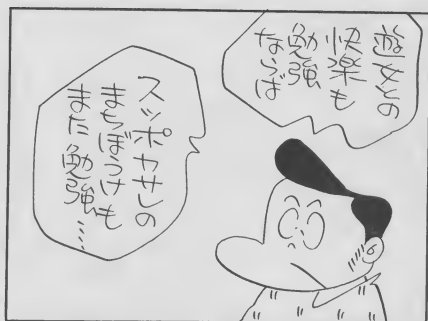 遊女との
快楽も
勉強
ならば
スッポカサレの
まちぼうけも
また勉強……